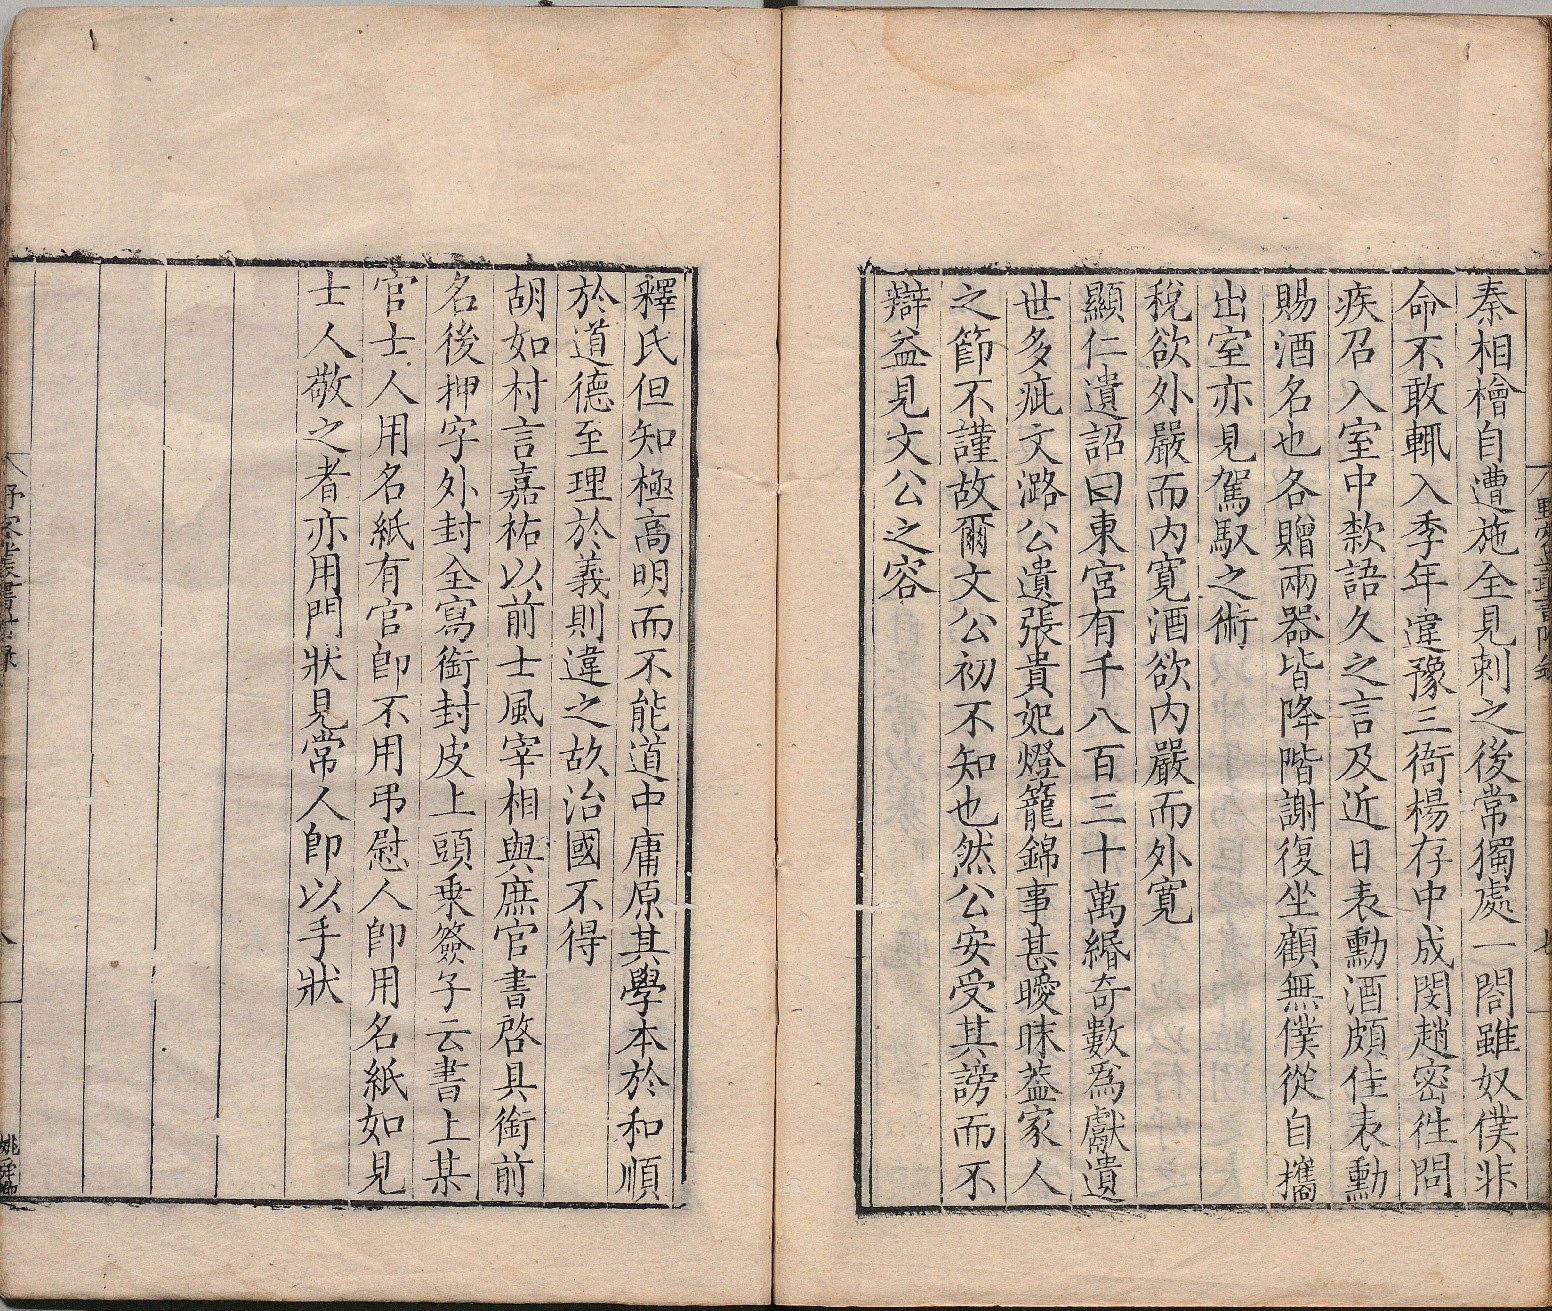 秦相檜自遭施全見刺之後常獨處一閤雖奴僕非
命不敢輒入季年違豫三衙楊存中成閔趙密徃問
疾召入室中款語久之言及近日表勳酒頗佳表勳
賜酒名也各贈兩器皆降階謝復坐顧無僕從自攜
出室亦見駕馭之術
稅欲外嚴而内寛酒欲内嚴而外寛
顯仁遺詔曰東宮有千八百三十萬緡奇數爲獻遺
世多疵文潞公遺張貴妃燈籠錦事甚曖昧葢家人
之節不謹故爾文公初不知也然公安受其謗而不
辯益見文公之容
釋氏但知極高明而不能道中庸原其學本於和順
於道德至理於義則違之故治國不得
胡如村言嘉祐以前士風宰相與庶官書啓具銜前
名後押字外封全寫銜封皮上頭乗簽子云書上某
官士人用名紙有官卽不用弔慰人卽用名紙如見
士人敬之者亦用門狀見常人卽以手狀
野客叢書附錄
八
姚舜卿